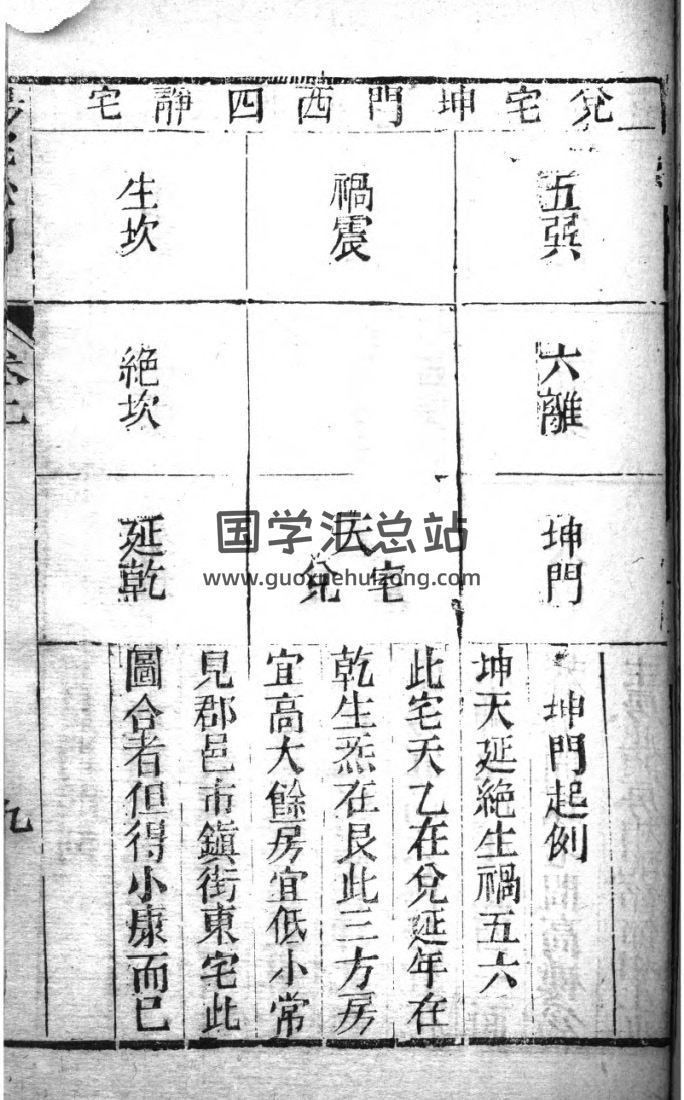 兌宅坤門西四靜宅
五巽
禍震
生坎
六離
絕坎
坤門
天
兌宅
延乾
坤門起例
坤天延絕生禍五六
此宅天乙在兌延年在
乾生炁在艮此三方房
宜高大餘房宜低小常
見郡邑市鎮街東宅此
圖合者但得小康而已
九
国学汇总站
www.guoxuehuizong.com